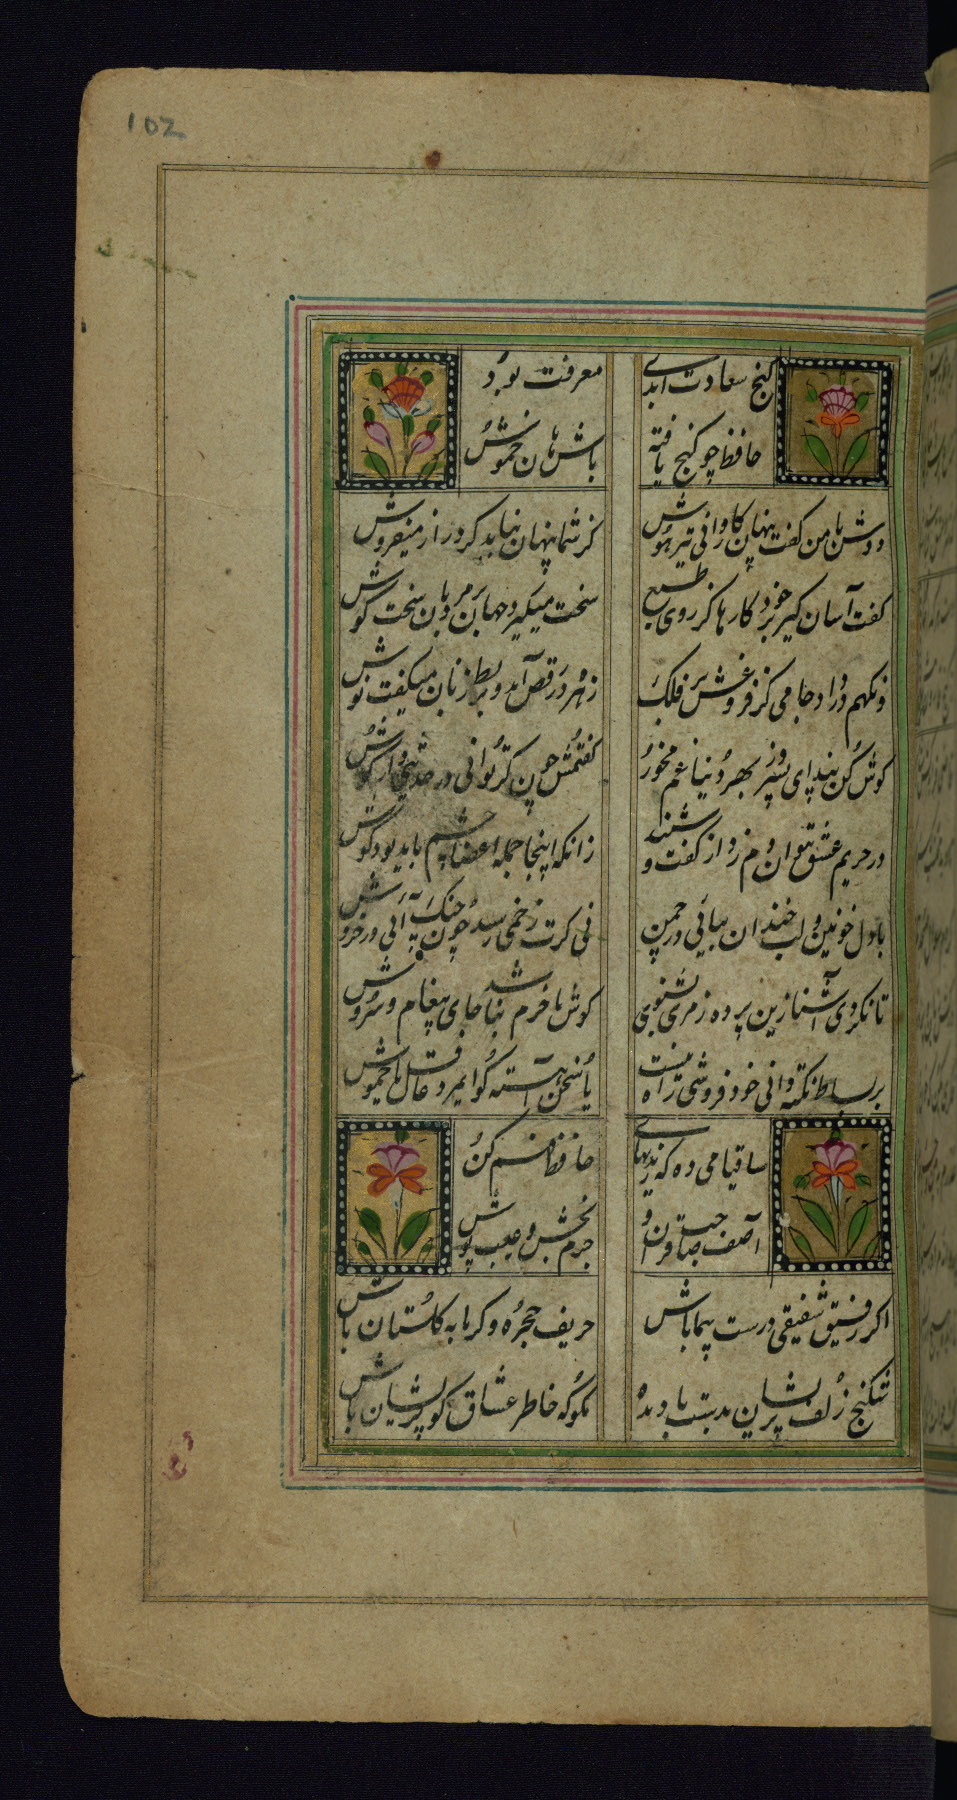 102
گنج سعادت ابدی
معرفت بود
حافظ چو گنج یافته
باش هان خموش
دوش با من گفت پنهان کاردانی تیزهوش
کز شما پنهان نباید کرد راز میفروش
گفت آسان گیر بر خود کارها کز روی طبع
سخت میگیرد جهان بر مردمان سخت کوش
وانگهم در داد جامی کز فروغش بر فلک
زهره در رقص آمد و بربط زنان میگفت نوش
گوش کن پند ای پسر وز بهر دنیا غم مخور
گفتمش چون در حدیثی توانی گوش
در حریم عشق نتوان دم زد از گفت و شنید
زانکه اینجا جمله اعضا چشم باید بود و گوش
با دل خونین لب خندان بیائی در چمن
نی گرت زخمی رسد چون چنگ آئی در خروش
تا نگردی آشنا زین پرده رمزی نشنوی
گوش نا محرم نباشد جای پیغام و سروش
بر بساط نکته دانی خود فروشی راه نیست
یا سخن آهسته گو ای مرد عاقل یا خموش
ساقیا می ده که رندیهای
حافظ فهم کن
آصف صاحب قران و
جرم بخش و عیب پوش
اگر رفیق شفیقی درست پیما باش
حریف حجره و گرمابه گلستان باش
شکنج زلف پریشان بدست باد مده
مگو که خاطر عشاق گو پریشان باش